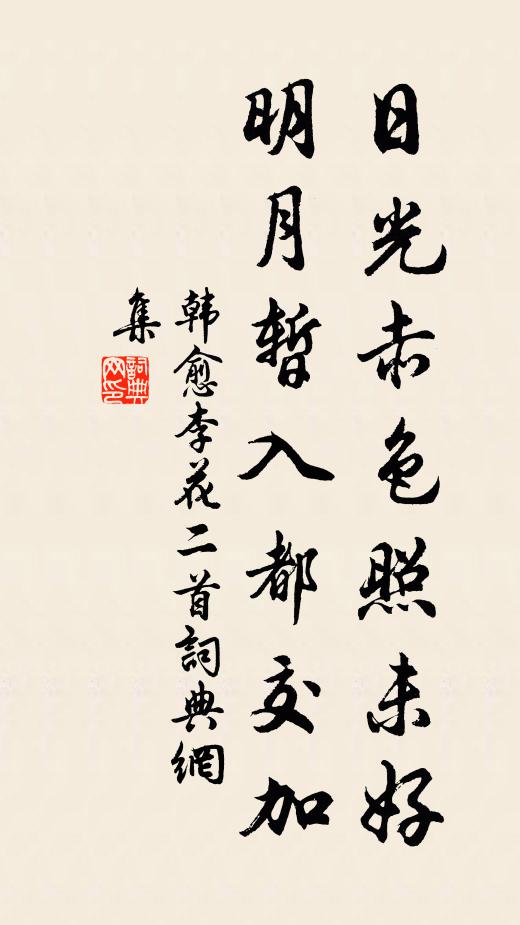 日光赤色照未好
明月暫入都交加
韩愈李花二首詞典網
集
詞典
网印